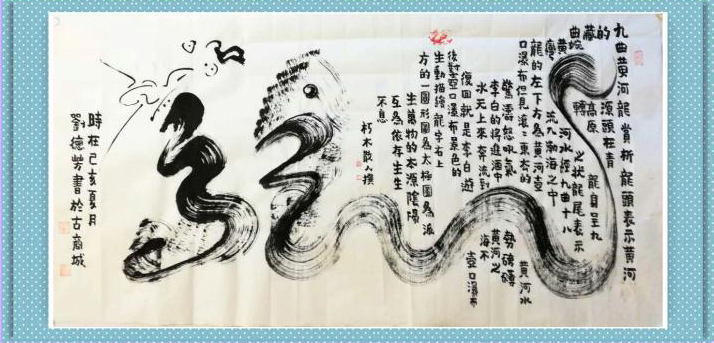 九曲黄河龍賞析龍頭表示黄河
的源頭在青
藏高原龍身呈九
曲蜿轉之狀龍尾表示
黄河水經九曲十八
彎流入渤海之中
龍的左下方為黄河壺
口瀑布但見滚滚東奔的黄河水
驚濤怒吼氣勢磅礴
李白的將進酒中黄河之
水天上來奔流到海不
復回就是李白遊壺口瀑布
後對壺口瀑布景色的
生動描繪龍字右上
方的一圓形圖為太極圖為派
生萬物的本源陰陽
互為依存生生
不息
朽木散人撰
時在己亥夏月
劉德芳書於古商城